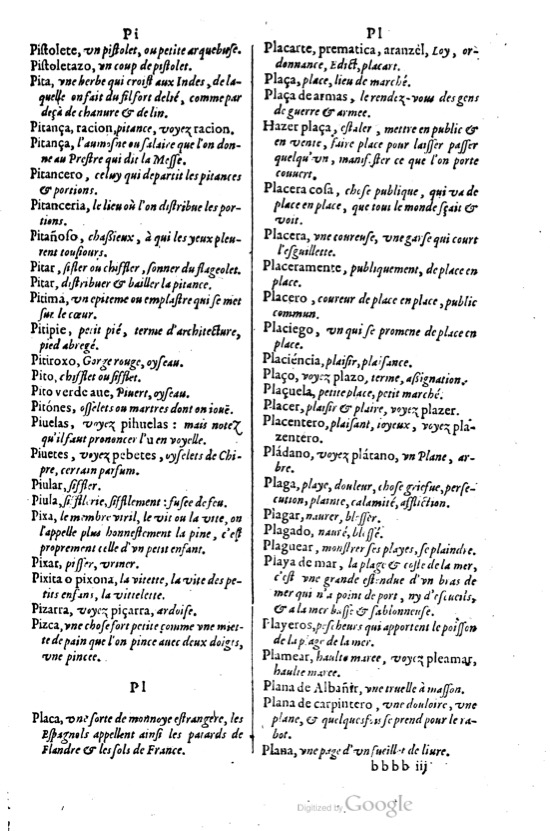 Pi
Pistolete, vn pistolet, ou petite arquebuse.
Pistoletazo, vn coup de pistolet.
Pita, vne herbe qui croist aux Indes, de la-
quelle on fait du fil fort delié, comme par
deçà de chanure & de lin.
Pitança, racion, pitance, voyez racion.
Pitança, l'aumosne ou salaire que l'on don-
ne au Prestre qui dit la Messe.
Pitancero, celuy qui departit les pitances
& portions.
Pitanceria, le lieu où l'on distribue les por-
tions.
Pitañoso, chaßieux, à qui les yeux pleu-
rent tousiours.
Pitar, sifler ou chiffler, sonner du flageolet.
Pitar, distribuer & bailler la pitance.
Pitima, vn epiteme ou emplastre qui se met
sur le cœur.
Pitipie, petit pié, terme d'architecture,
pied abregé.
Pitiroxo, Gorge rouge, oyseau.
Pito, chifflet ou sifflet.
Pito verde aue, Piuert, oyseau.
Pitónes, osselets ou martres dont on iouë.
Piuelas, voyez pihuelas: mais notez
qu'il faut prononcer l'u en voyelle.
Piuetes, voyez pebetes, oyselets de Chi-
pre, certain parfum.
Piular, siffler.
Piula, sifflerie, sifflement: fusee de feu.
Pixa, le membre viril, le vit ou la vite, on
l'appelle plus honnestement la pine, c'est
proprement celle d'vn petit enfant.
Pixar, pisser, vriner.
Pixita o pixona, la vitette, la vite des pe-
tits enfans, la vittelette.
Pizarra, voyez piçarra, ardoise.
Pizca, vne chose fort petite comme vne miet-
te de pain que l'on pince auec deux doigts,
vne pincee.
Pl
Placa, vne sorte de monnoye estrangere, les
Espagnols appellent ainsi les patards de
Flandre & les sols de France.
Pl
Placarte, prematica, aranzel, Loy, or-
donnance, Edict, placart.
Plaça, place, lieu de marché.
Plaça de armas, le rendez-vous des gens
de guerre & armee.
Hazer plaça, estaler, mettre en public &
en vente, faire place pour laisser passer
quelqu'vn, manifester ce que l'on porte
couuert.
Placera cosa, chose publique, qui va de
place en place, que tout le monde sçait &
voit.
Placera, vne coureuse, vne garse qui court
l'esguillette.
Placeramente, publiquement, de place en
place.
Placero, coureur de place en place, public
commun.
Placiego, vn qui se promene de place en
place.
Placiéncia, plaisir, plaisance.
Plaço, voyez plazo, terme, assignation.
Plaçuela, petite place, petit marché.
Placer, plaisir & plaire, voyez plazer.
Placentero, plaisant, ioyeux, voyez pla-
zentero.
Pládano, voyez plátano, vn Plane, ar-
bre.
Plaga, playe, douleur, chose griefue, perse-
cution, plainte, calamité, affliction.
Plagar, naurer, blesser.
Plagado, nauré, blessé.
Plaguear, monstrer ses playes, se plaindre.
Playa de mar, la plage & coste de la mer,
c'est vne grande estendue d'vn bras de
mer qui n'a point de port, ny d'escueils,
& a la mer basse & sablonneuse.
Playeros, pescheurs qui apportent le poisson
de la plage de la mer.
Plamear, haulte maree, voyez pleamar,
haulte maree.
Plana de Albañir, vne truelle à masson.
Plana de carpintero, vne douloire, vne
plane, & quelquesfois se prend pour le ra-
bot.
Plana, vne page d'vn fueillet de liure.
bbbb iij
Digitized by Google